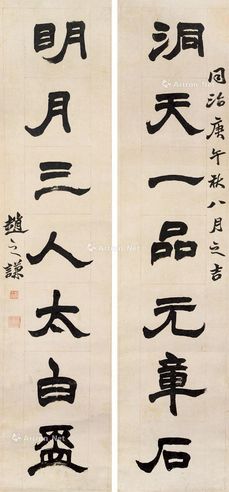 同治庚午秋八月之吉
洞天一品元章石
眀月三人太白盃
趙之謙
Artron.Net
Artron.Net